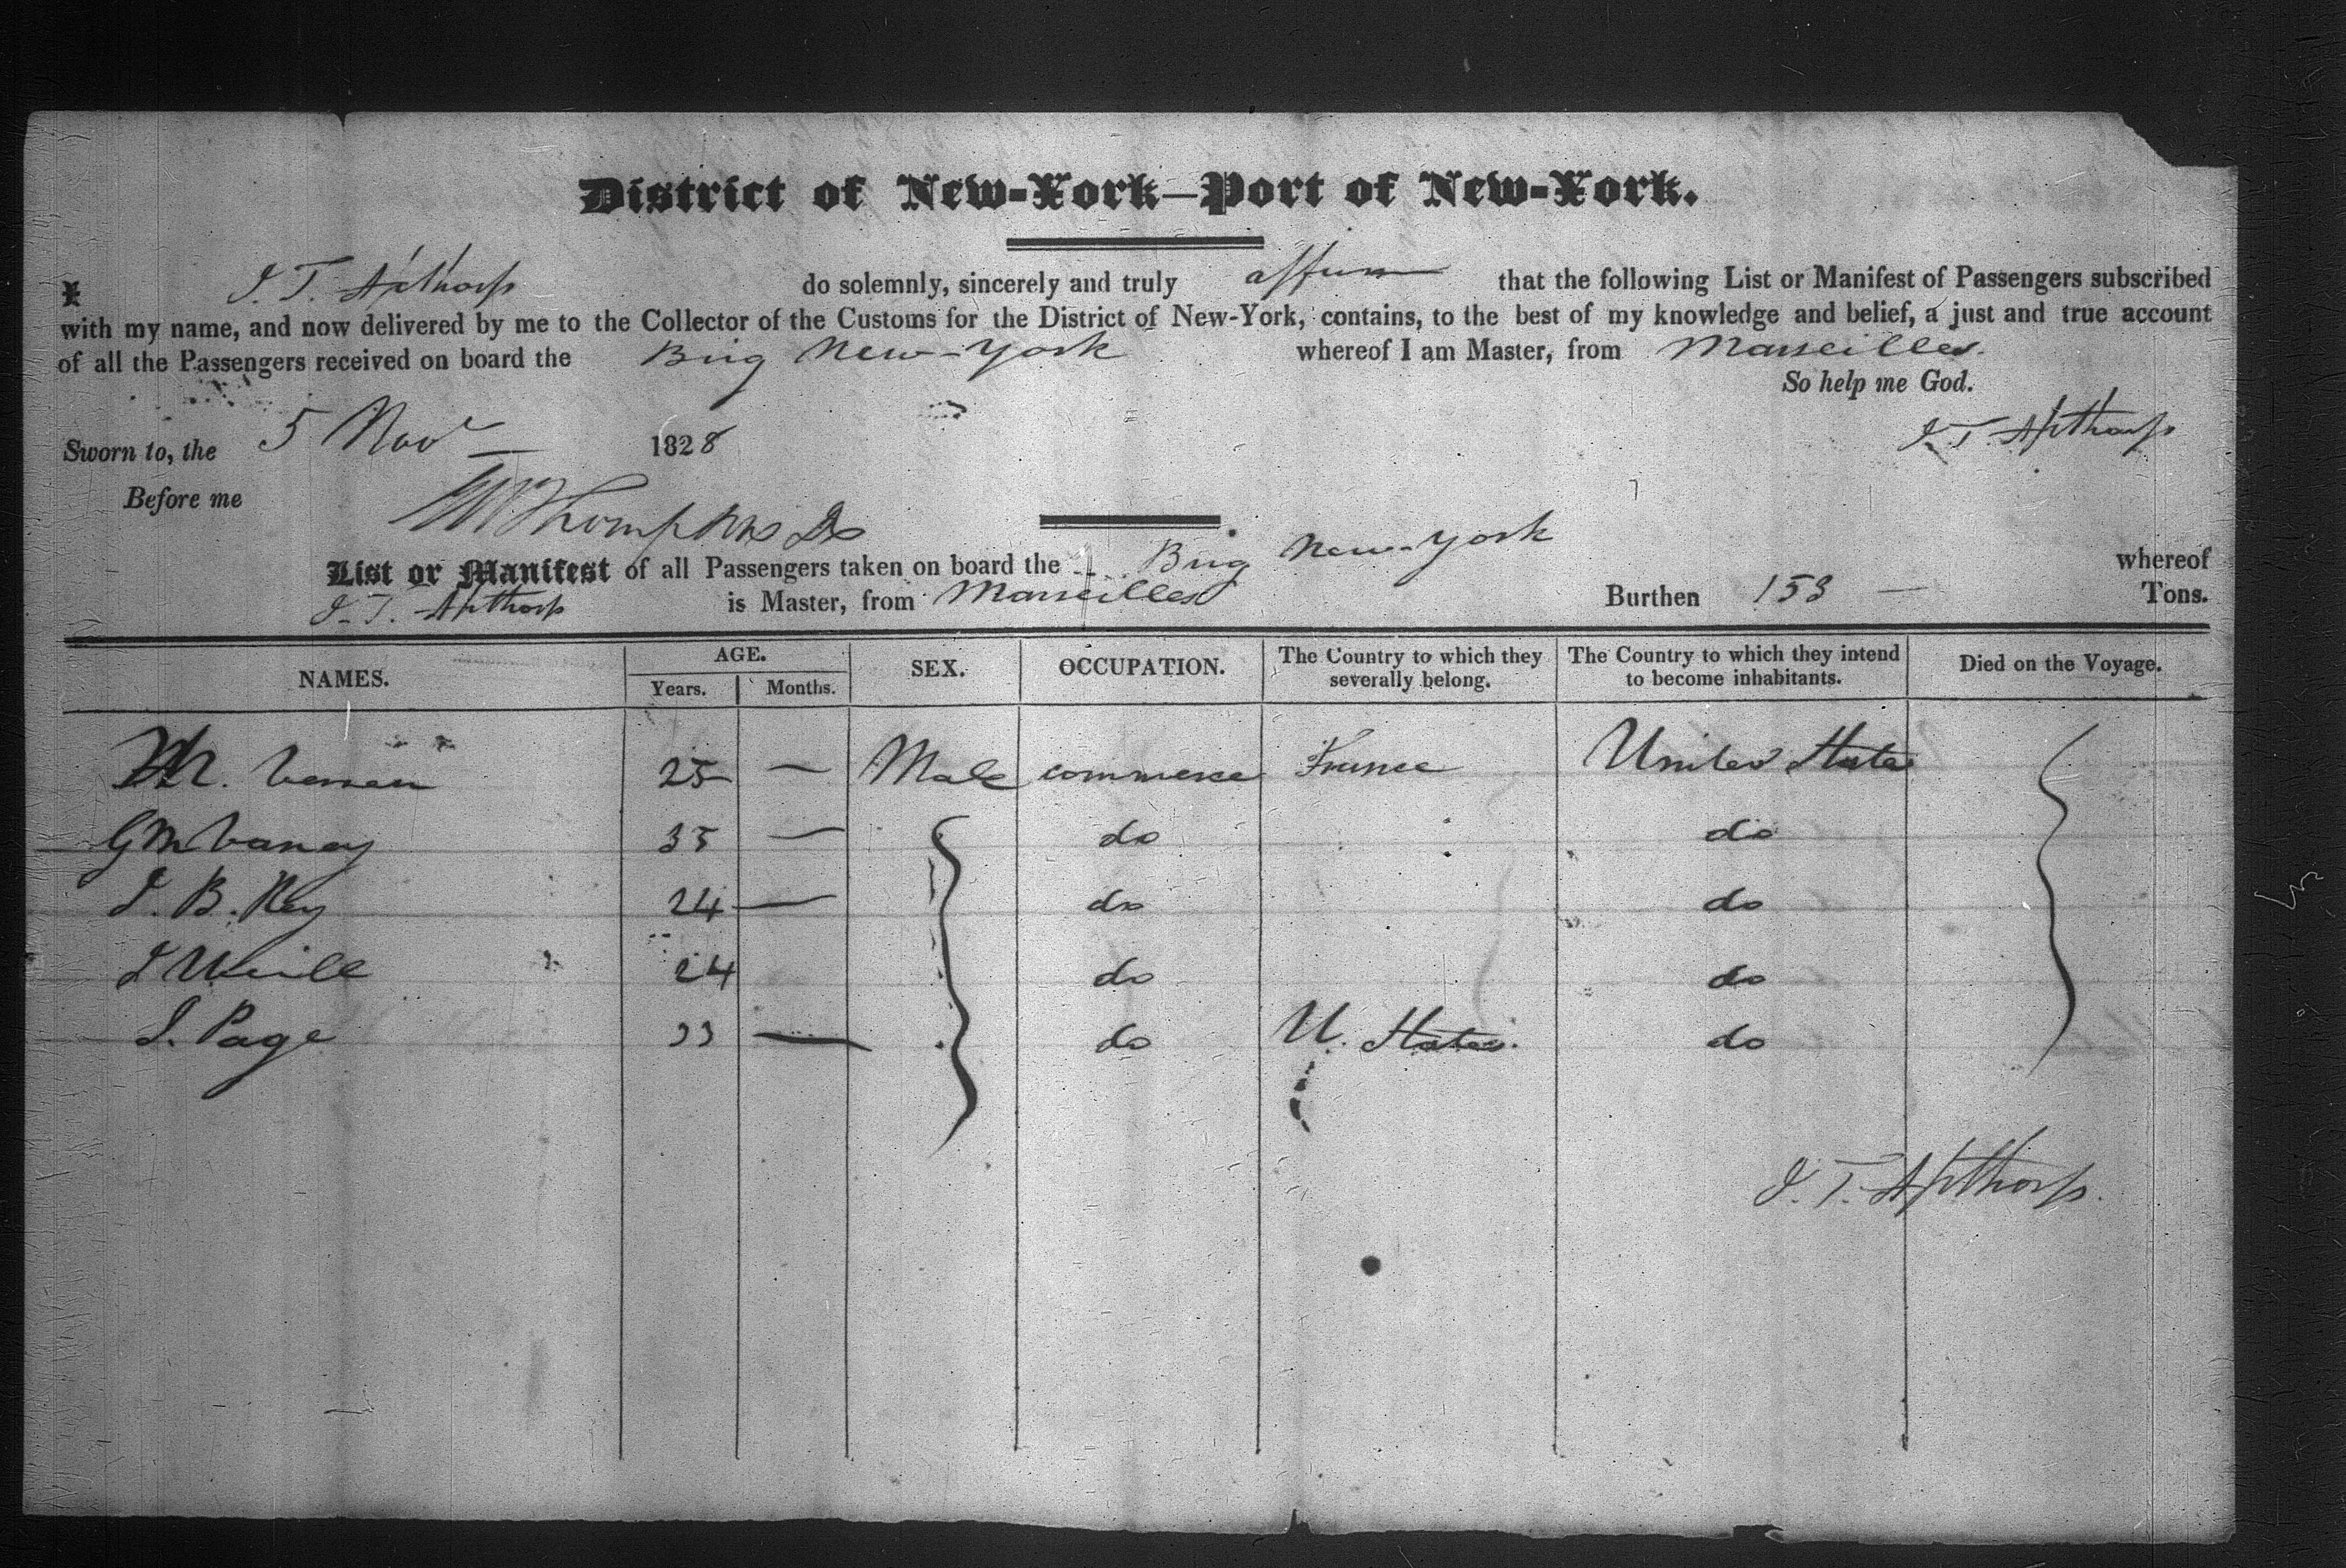 District of New-York—Port of New-York.
I J. T. Apthorp do solemnly, sincerely and truly affirm that the following List or Manifest of Passengers subscribed
with my name, and now delivered by me to the Collector of the Customs for the District of New-York, contains, to the best of my knowledge and belief, a just and true account
of all the Passengers received on board the Brig New-York whereof I am Master, from Marseilles.
So help me God.
J. T. Apthorp
Sworn to, the 5 Nov 1828
Before me Thompson
List or Manifest of all Passengers taken on board the Brig New-York whereof
J. T. Apthorp is Master, from Marseilles Burthen 153 Tons.
NAMES. AGE. Years. Months. SEX. OCCUPATION. The Country to which they severally belong. The Country to which they intend to become inhabitants. Died on the Voyage.
25 — Male commerce France United States
35 — do do
J. B. Rey 24 — do do
24 do do
J. Page 33 — do U. States. do
J. T. Apthorp.